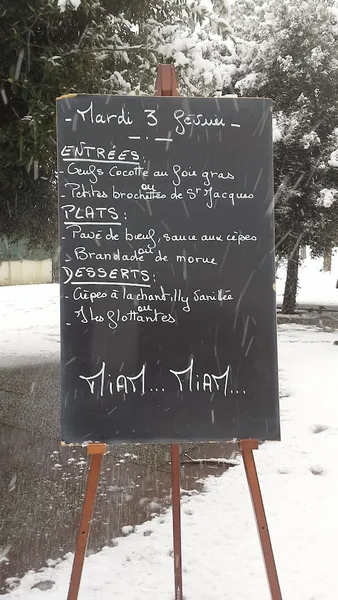 - Mardi 3 février -
- . -
ENTRÉES:
- Œufs Cocotte au foie gras
ou
- Petites brochettes de St Jacques
PLATS:
- Pavé de bœuf, sauce aux cèpes
ou
- Brandade de morue
DESSERTS:
- Crêpes à la chantilly Vanillée
ou
- Iles flottantes
MIAM... MIAM...